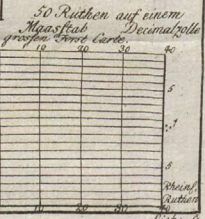 50 Ruthen auf einem
Maasstab Decimalzolle
grossen Forst Carte.
10 20 30 40
5
5
Rheinl.
Ruthen
10 20 30 40